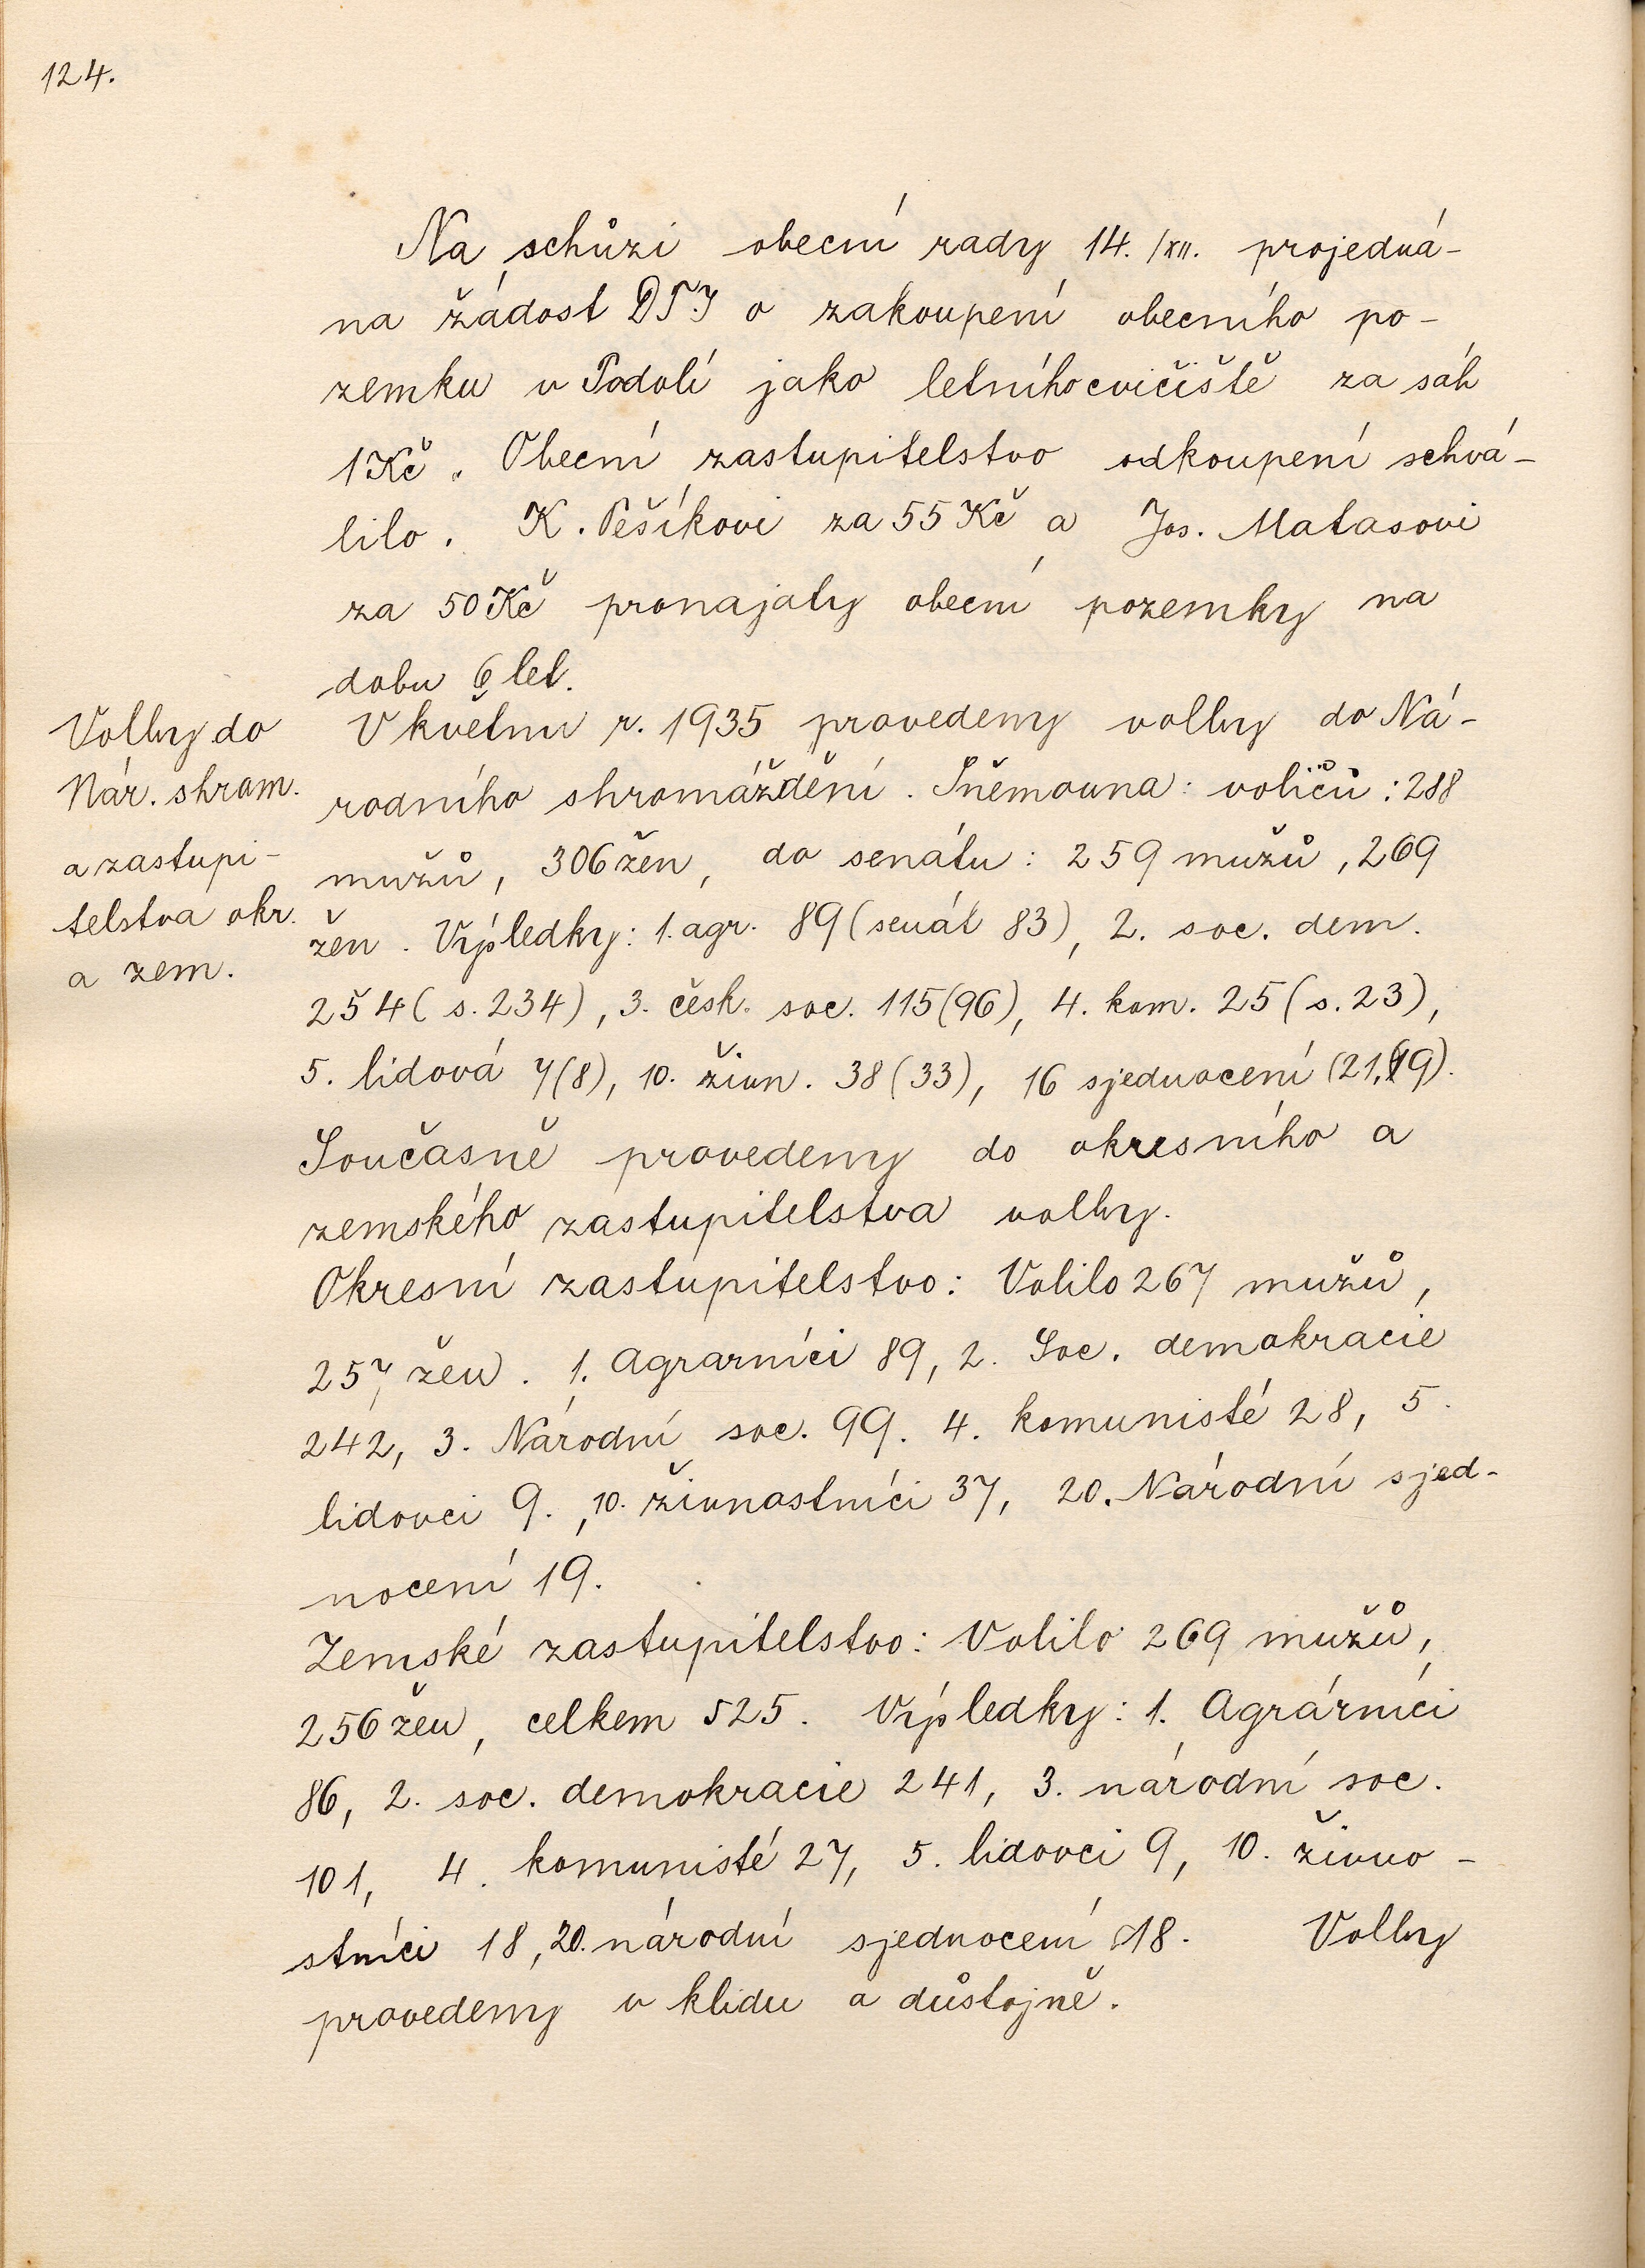 124.
Na schůzi obecní rady 14./XII. projedná-
na žádost DTJ o zakoupení obecního po-
zemku v Podolí jako letního cvičiště za sáh
1 Kč. Obecní zastupitelstvo odkoupení schvá-
lilo. K. Pešíkovi za 55 Kč a Jos. Matasovi
za 50 Kč pronajaty obecní pozemky na
dobu 6 let.
Volby do
Nár. shrom.
a zastupi-
telstva okr.
a zem.
V květnu r. 1935 provedeny volby do Ná-
rodního shromáždění. Sněmovna: voličů: 288
mužů, 306 žen, do senátu: 259 mužů, 269
žen. Výsledky: 1. agr. 89 (senát 83), 2. soc. dem.
254 (s. 234), 3. česk. soc. 115 (96), 4. kom. 25 (s. 23),
5. lidová 7 (8), 10. živn. 38 (33), 16 sjednocení (21, 19).
Současně provedeny do okresního a
zemského zastupitelstva volby.
Okresní zastupitelstvo: Volilo 267 mužů,
257 žen. 1. Agrarníci 89, 2. Soc. demokracie
242, 3. Národní soc. 99. 4. komunisté 28, 5.
lidovci 9., 10. živnostníci 37, 20. Národní sjed-
nocení 19.
Zemské zastupitelstvo: Volilo 269 mužů,
256 žen, celkem 525. Výsledky: 1. Agrárníci
86, 2. soc. demokracie 241, 3. národní soc.
101, 4. komunisté 27, 5. lidovci 9, 10. živno-
stníci 18, 20. národní sjednocení 18. Volby
provedeny v klidu a důstojně.